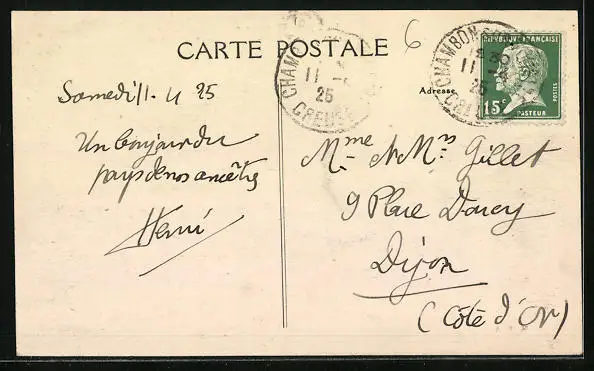 CARTE POSTALE
6
CHAMBON
11
25
CREUSE
CHAMBON
30
11
25
RÉPUBLIQUE FRANÇAISE
15c
POSTES
PASTEUR
Adresse
Samedi
25
Un bonjour du
pays de nos ancêtres
Henri
Mme & Mrs Gillet
9 Place Darcy
Dijon
(Côte d'Or)